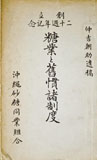 仲吉朝助遺稿
創立
二十週年記念
糖業と舊慣諸制度
沖縄砂糖同業組合